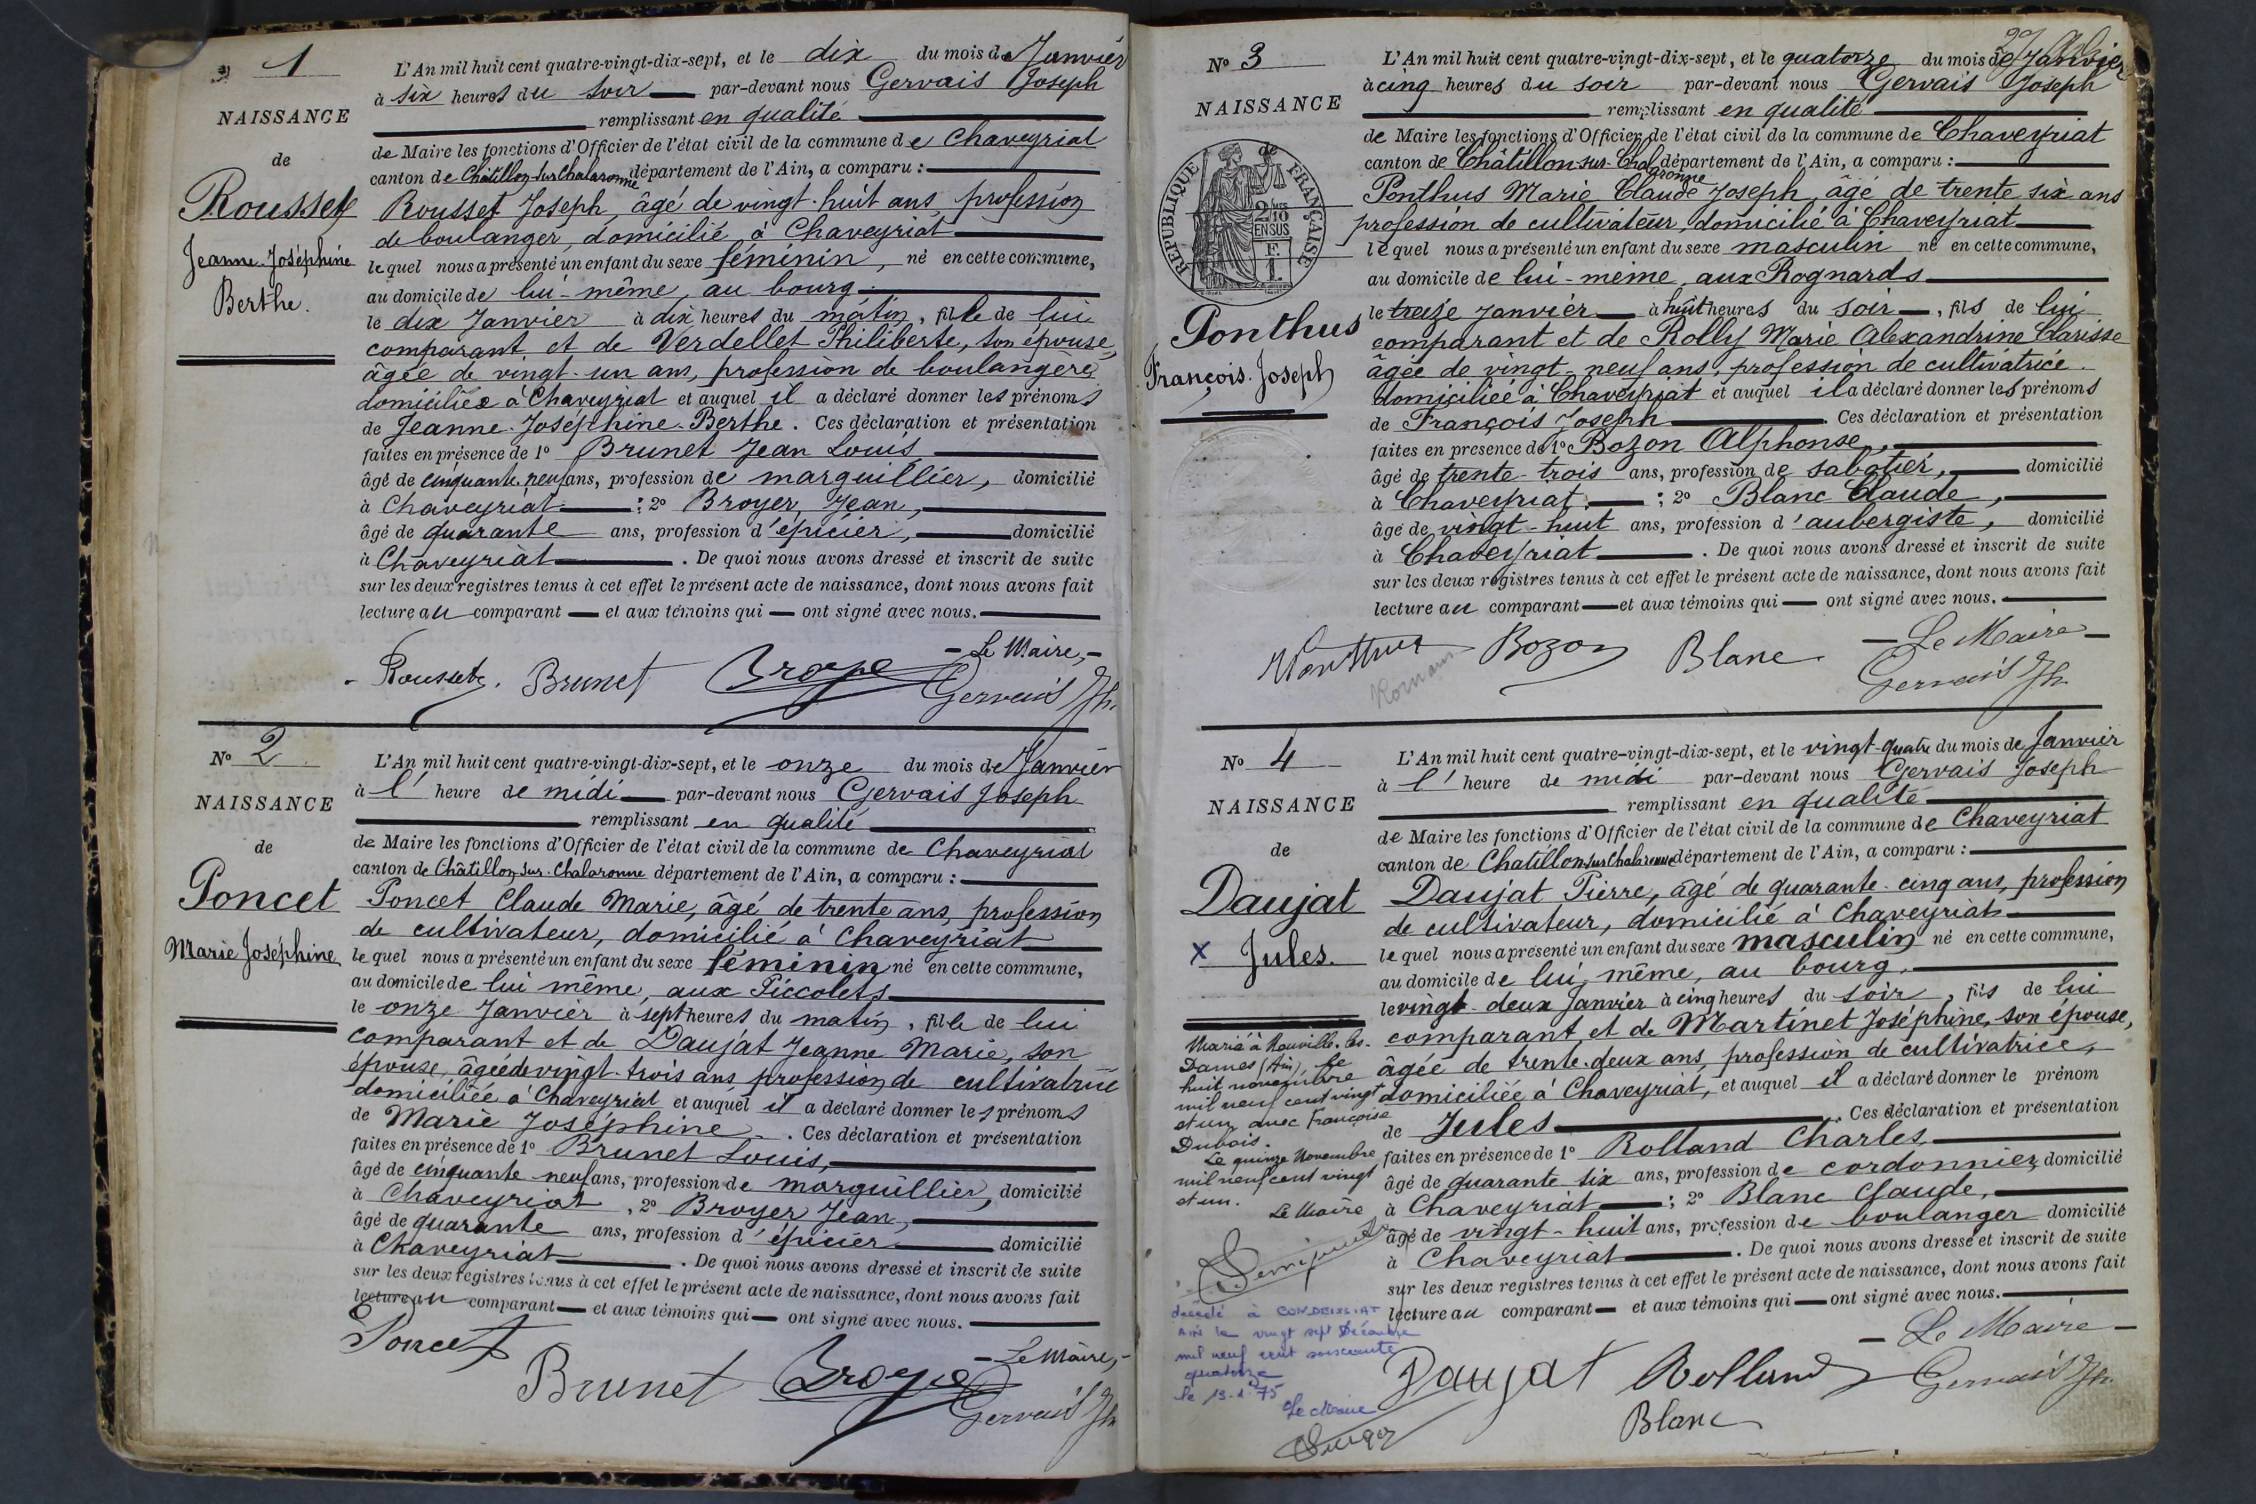 1
NAISSANCE
de
Rousset
Jeanne-Joséphine
Berthe.
L'An mil huit cent quatre-vingt-dix-sept, et le dix du mois de Janvier
à six heures du soir par-devant nous Gervais Joseph
remplissant en qualité
de Maire les fonctions d'Officier de l'état civil de la commune de Chaveyriat
canton de Châtillon-sur-Chalaronne département de l'Ain, a comparu :
Rousset Joseph, âgé de vingt-huit ans, profession
de boulanger, domicilié à Chaveyriat
lequel nous a présenté un enfant du sexe féminin, né en cette commune,
au domicile de lui-même, au bourg
le dix Janvier à dix heures du matin, fille de lui
comparant et de Verdellet Philiberte, son épouse,
âgée de vingt-un ans, profession de boulangère
domiciliée à Chaveyriat et auquel il a déclaré donner les prénoms
de Jeanne-Joséphine-Berthe. Ces déclaration et présentation
faites en présence de 1º Brunet Jean Louis
âgé de cinquante-neuf ans, profession de marguillier, domicilié
à Chaveyriat ; 2º Broyer, Jean,
âgé de quarante ans, profession d'épicier, domicilié
à Chaveyriat. De quoi nous avons dressé et inscrit de suite
sur les deux registres tenus à cet effet le présent acte de naissance, dont nous avons fait
lecture au comparant et aux témoins qui ont signé avec nous.
Le Maire,
Rousset. Brunet Broyer Gervais Jh.
No 2
NAISSANCE
de
Poncet
Marie Joséphine
L'An mil huit cent quatre-vingt-dix-sept, et le onze du mois de Janvier
à l' heure de midi par-devant nous Gervais Joseph
remplissant en qualité
de Maire les fonctions d'Officier de l'état civil de la commune de Chaveyriat
canton de Châtillon-sur-Chalaronne département de l'Ain, a comparu :
Poncet Claude Marie, âgé de trente ans, profession
de cultivateur, domicilié à Chaveyriat
lequel nous a présenté un enfant du sexe féminin né en cette commune,
au domicile de lui même, aux Piccolets
le onze Janvier à sept heures du matin, fille de lui
comparant et de Daujat Jeanne Marie, son
épouse, âgée de vingt-trois ans, profession de cultivatrice
domiciliée à Chaveyriat et auquel il a déclaré donner les prénoms
de Marie Joséphine. Ces déclaration et présentation
faites en présence de 1º Brunet Louis,
âgé de cinquante neuf ans, profession de marguillier, domicilié
à Chaveyriat, 2º Broyer Jean,
âgé de quarante ans, profession d'épicier domicilié
à Chaveyriat. De quoi nous avons dressé et inscrit de suite
sur les deux registres tenus à cet effet le présent acte de naissance, dont nous avons fait
lecture au comparant et aux témoins qui ont signé avec nous.
Le Maire,
Poncet Brunet Broyer Gervais Jh
No 3
NAISSANCE
de
RÉPUBLIQUE FRANÇAISE
2/10
EN SUS
F.
1.
Ponthus
François-Joseph
L'An mil huit cent quatre-vingt-dix-sept, et le quatorze du mois de Janvier
à cinq heures du soir par-devant nous Gervais Joseph
remplissant en qualité
de Maire les fonctions d'Officier de l'état civil de la commune de Chaveyriat
canton de Châtillon-sur-Chalaronne département de l'Ain, a comparu :
Ponthus Marie Claude Joseph, âgé de trente six ans
profession de cultivateur, domicilié à Chaveyriat
lequel nous a présenté un enfant du sexe masculin né en cette commune,
au domicile de lui-même, aux Rognards
le treize Janvier à huit heures du soir, fils de lui
comparant et de Rolly Marie Alexandrine Clarisse
âgée de vingt-neuf ans, profession de cultivatrice
domiciliée à Chaveyriat et auquel il a déclaré donner les prénoms
de François Joseph. Ces déclaration et présentation
faites en présence de 1º Bozon Alphonse,
âgé de trente-trois ans, profession de sabotier, domicilié
à Chaveyriat ; 2º Blanc Claude,
âgé de vingt-huit ans, profession d'aubergiste, domicilié
à Chaveyriat. De quoi nous avons dressé et inscrit de suite
sur les deux registres tenus à cet effet le présent acte de naissance, dont nous avons fait
lecture au comparant et aux témoins qui ont signé avec nous.
Le Maire
Ponthus Bozon Blanc Gervais Jh.
No 4
NAISSANCE
de
Daujat
X Jules.
Marié à Neuville-les-
Dames (Ain), le
huit novembre
mil neuf cent vingt
et un avec Françoise
Dubois.
Le quinze Novembre
mil neuf cent vingt
et un.
Le Maire
décédé à CONDEISSIAT
AIN le vingt sept Décembre
mil neuf cent soixante
quatorze
le 13-1-75
Le Maire
L'An mil huit cent quatre-vingt-dix-sept, et le vingt-quatre du mois de Janvier
à l' heure de midi par-devant nous Gervais Joseph
remplissant en qualité
de Maire les fonctions d'Officier de l'état civil de la commune de Chaveyriat
canton de Chatillon-sur-Chalaronne département de l'Ain, a comparu :
Daujat Pierre, âgé de quarante-cinq ans, profession
de cultivateur, domicilié à Chaveyriat
lequel nous a présenté un enfant du sexe masculin né en cette commune,
au domicile de lui même, au bourg.
le vingt-deux Janvier à cinq heures du soir, fils de lui
comparant, et de Martinet Joséphine, son épouse,
âgée de trente-deux ans, profession de cultivatrice,
domiciliée à Chaveyriat, et auquel il a déclaré donner le prénom
de Jules. Ces déclaration et présentation
faites en présence de 1º Rolland Charles
âgé de quarante six ans, profession de cordonnier, domicilié
à Chaveyriat ; 2º Blanc Claude,
âgé de vingt-huit ans, profession de boulanger domicilié
à Chaveyriat. De quoi nous avons dressé et inscrit de suite
sur les deux registres tenus à cet effet le présent acte de naissance, dont nous avons fait
lecture au comparant et aux témoins qui ont signé avec nous.
Le Maire
Daujat Rolland Gervais Jh.
Blanc